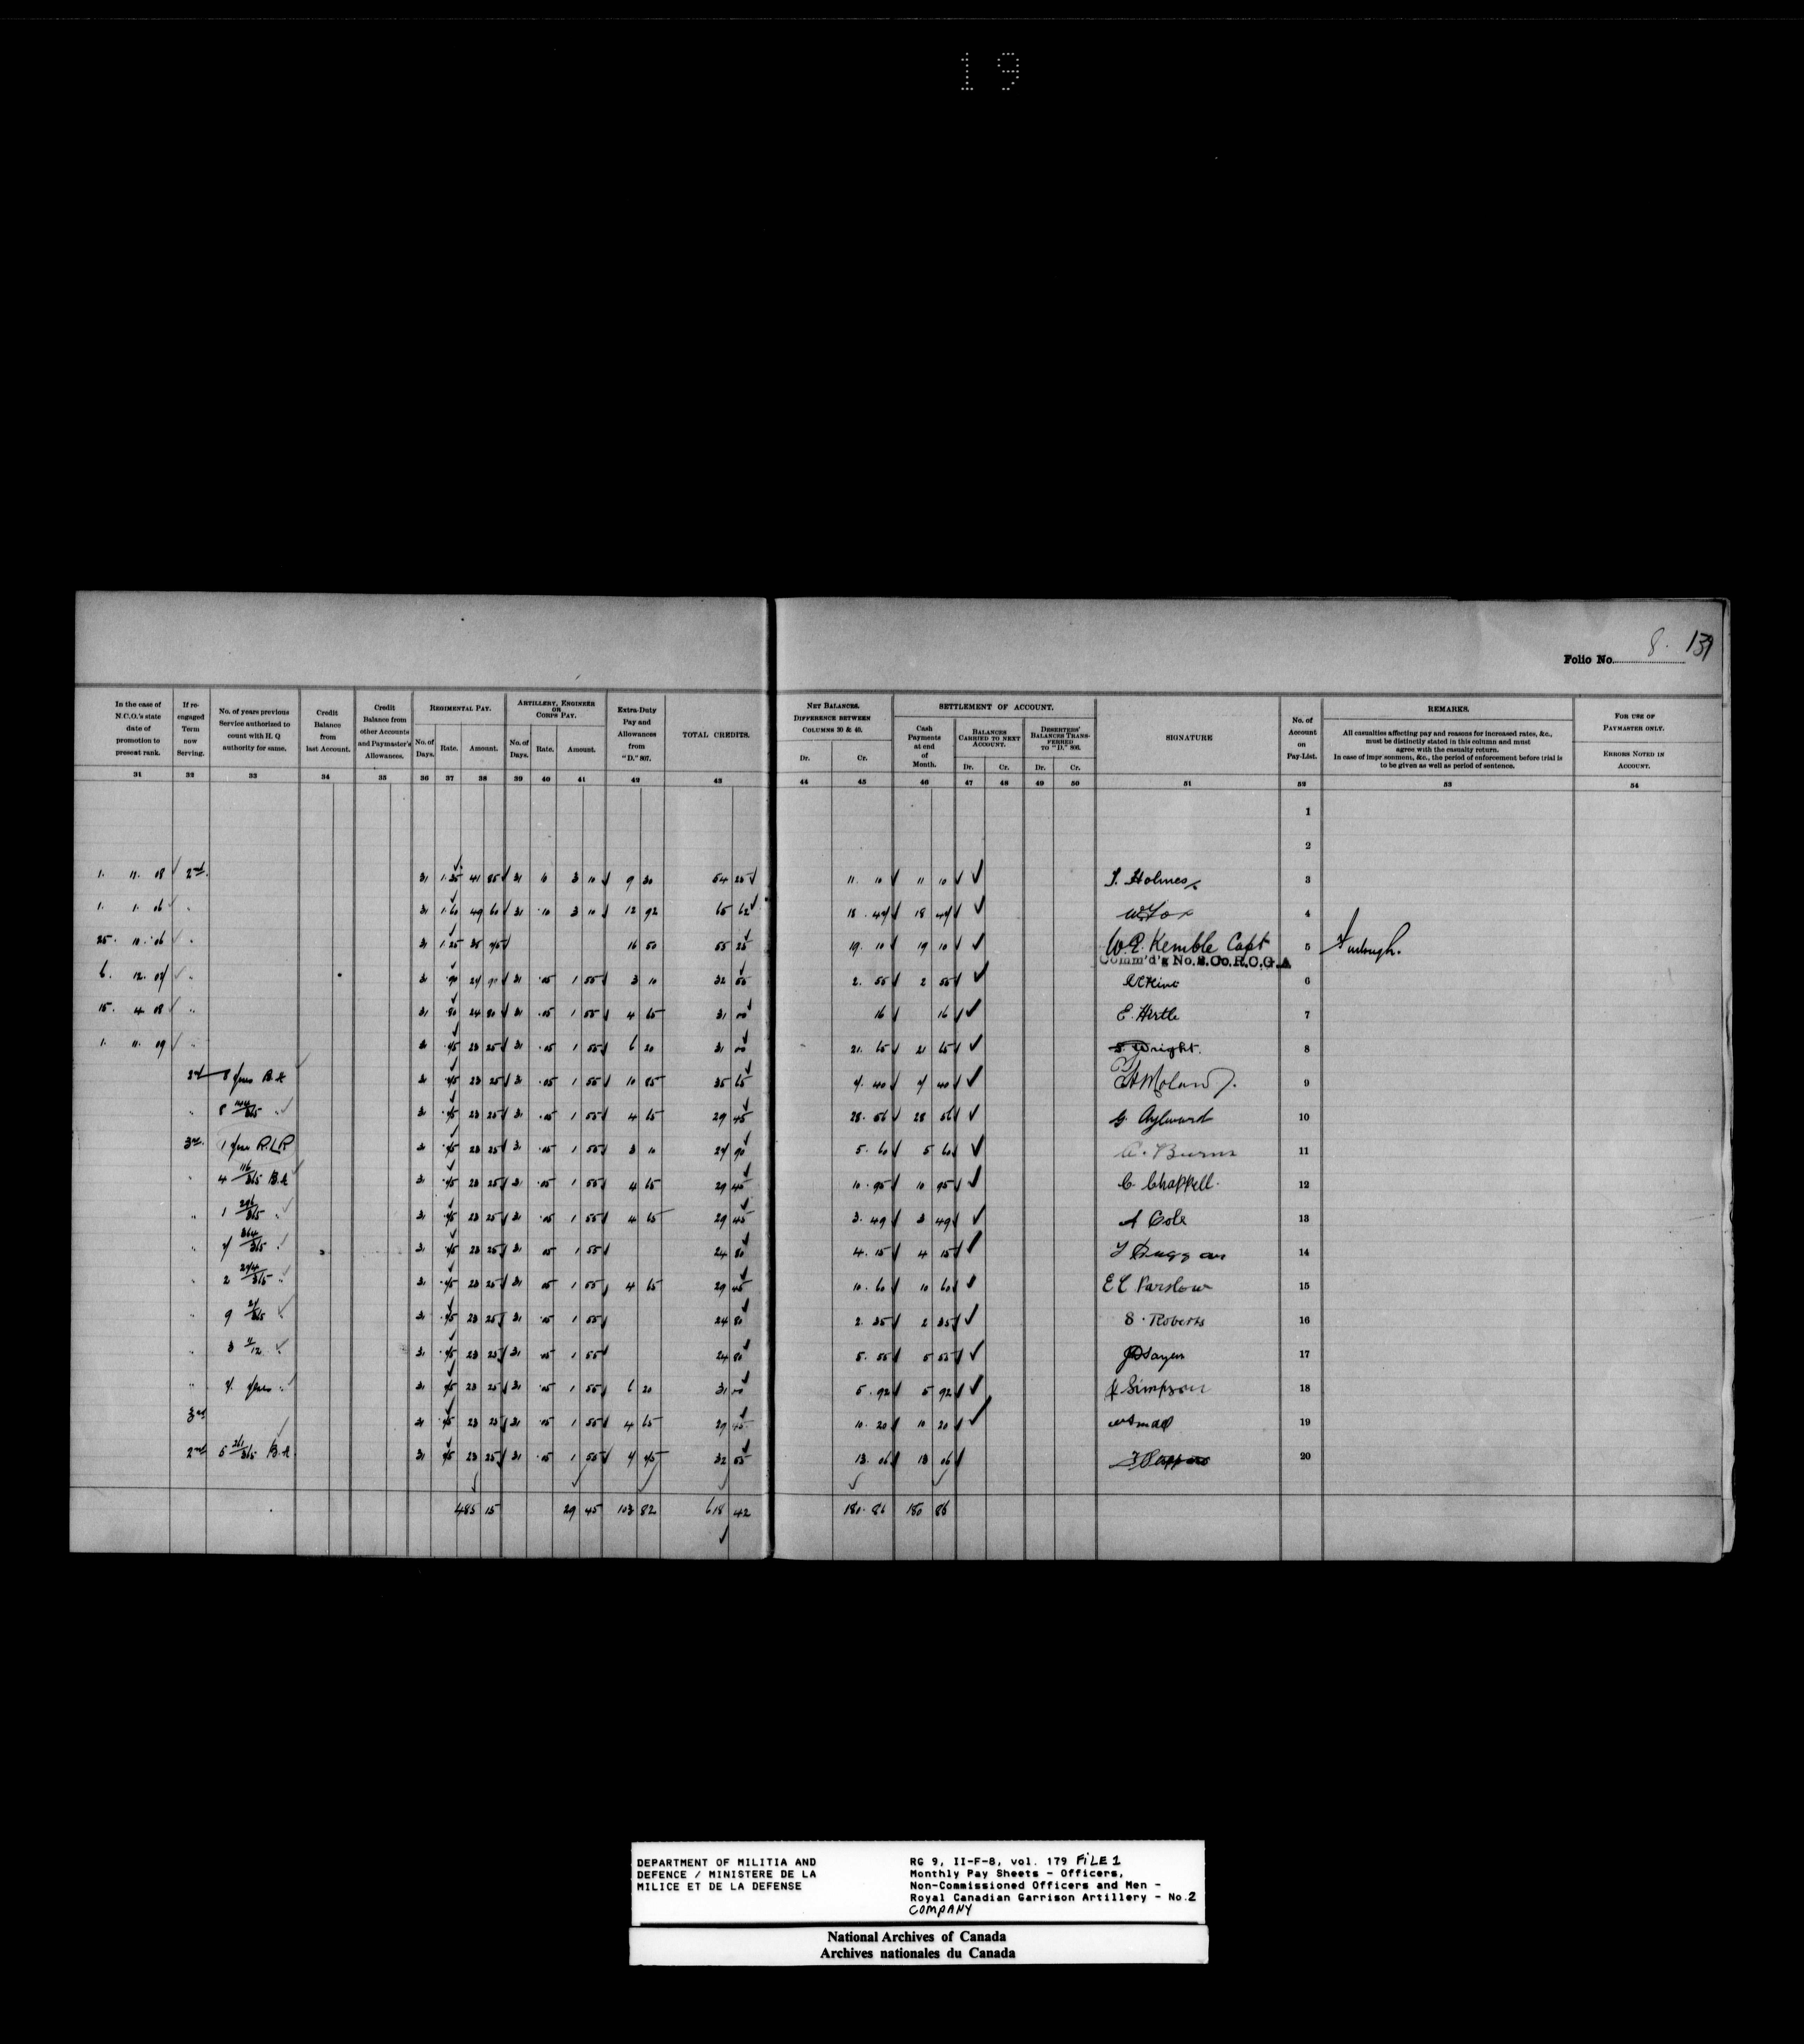 19
Folio No. 8. 139
In the case of N.C.O.'s state date of promotion to present rank. If re-engaged Term now Serving. No. of years previous Service authorized to count with H. Q authority for same. Credit Balance from last Account. Credit Balance from other Accounts and Paymaster's Allowances. REGIMENTAL PAY. No. of Days. Rate. Amount. ARTILLERY, ENGINEER OR CORPS PAY. No. of Days. Rate. Amount. Extra-Duty Pay and Allowances from "D." 807. TOTAL CREDITS.
NET BALANCES. DIFFERENCE BETWEEN COLUMNS 30 & 43. Dr. Cr. SETTLEMENT OF ACCOUNT. Cash Payments at end of Month. BALANCES CARRIED TO NEXT ACCOUNT. Dr. Cr. DESERTERS' BALANCES TRANSFERRED TO "D." 806. Dr. Cr. SIGNATURE No. of Account on Pay-List. REMARKS. All casualties affecting pay and reasons for increased rates, &c., must be distinctly stated in this column and must agree with the casualty return. In case of imprisonment, &c., the period of enforcement before trial is to be given as well as period of sentence. FOR USE OF PAYMASTER ONLY. ERRORS NOTED IN ACCOUNT.
31 32 33 34 35 36 37 38 39 40 41 42 43 44 45 46 47 48 49 50 51 52 53 54
1
2
1. 11. 08 2nd. 31 1.35 41 85 31 10 3 10 9 30 54 25 11. 10 11 10 Holmes 3
1. 1. 06 " 31 1.60 49 60 31 .10 3 10 12 92 65 62 18. 47 18 47 W Fox 4
25. 10. 06 " 31 1 25 38 75 16 50 55 25 19. 10 19 10 W.E. Kemble Capt 5 Furlough.
Comm'd'g No. 2. Co. R.C.G.A
6. 12. 07 " 31 31 .05 1 55 3 10 32 55 2. 55 2 55 6
15. 4 08 " 31 .80 24 80 31 .05 1 55 4 65 31 00 16 16 E. Hirtle 7
1. 11. 09 " 31 .75 23 25 31 .05 1 55 6 20 31 00 21. 65 21 65 Wright. 8
8 yrs R.A 31 .75 23 25 31 .05 1 55 10 85 35 65 7. 40 7 40 9
" 8 31 .75 23 25 31 .05 1 55 4 65 29 45 28. 56 28 56 G Aylward 10
3rd. 1 yrs R.L.R 31 .75 23 25 31 .05 1 55 3 10 27 90 5. 60 5 60 A. Burns 11
" 4 116/365 R.A 31 .75 23 25 31 .05 1 55 4 65 29 45 10. 95 10 95 C. Chappell. 12
" 1 296/365 " 31 .75 23 25 31 .05 1 55 4 65 29 45 3. 49 3 49 A Cole 13
" 7 364/365 " 31 .75 23 25 31 05 1 55 24 80 4. 15 4 15 Duggan 14
" 2 274/365 " 31 .75 23 25 31 05 1 55 4 65 29 45 10. 60 10 60 E C Parslow 15
" 9 31 .75 23 25 31 .05 1 55 24 80 2. 35 2 35 S. Roberts 16
" 3 31 .75 23 25 31 .05 1 55 24 80 5. 55 5 55 17
" 7. yrs " 31 75 23 25 31 .05 1 55 6 20 31 00 5. 92 5 92 H Simpson 18
3rd 31 .75 23 25 31 .05 1 55 4 65 29 45 10. 20 10 20 19
2nd 5 261/365 R.A. 31 75 23 25 31 .05 1 55 7 75 32 55 13. 06 13 06 20
485 15 29 45 103 82 618 42 180. 86 180 86
DEPARTMENT OF MILITIA AND
DEFENCE / MINISTERE DE LA
MILICE ET DE LA DEFENSE
RG 9, II-F-8, vol. 179 FILE 1
Monthly Pay Sheets - Officers,
Non-Commissioned Officers and Men -
Royal Canadian Garrison Artillery - No.2
COMPANY
National Archives of Canada
Archives nationales du Canada